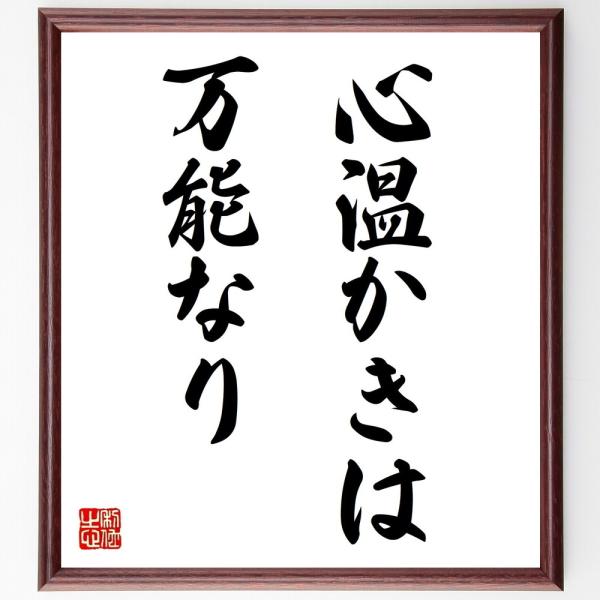 心温かきは
万能なり